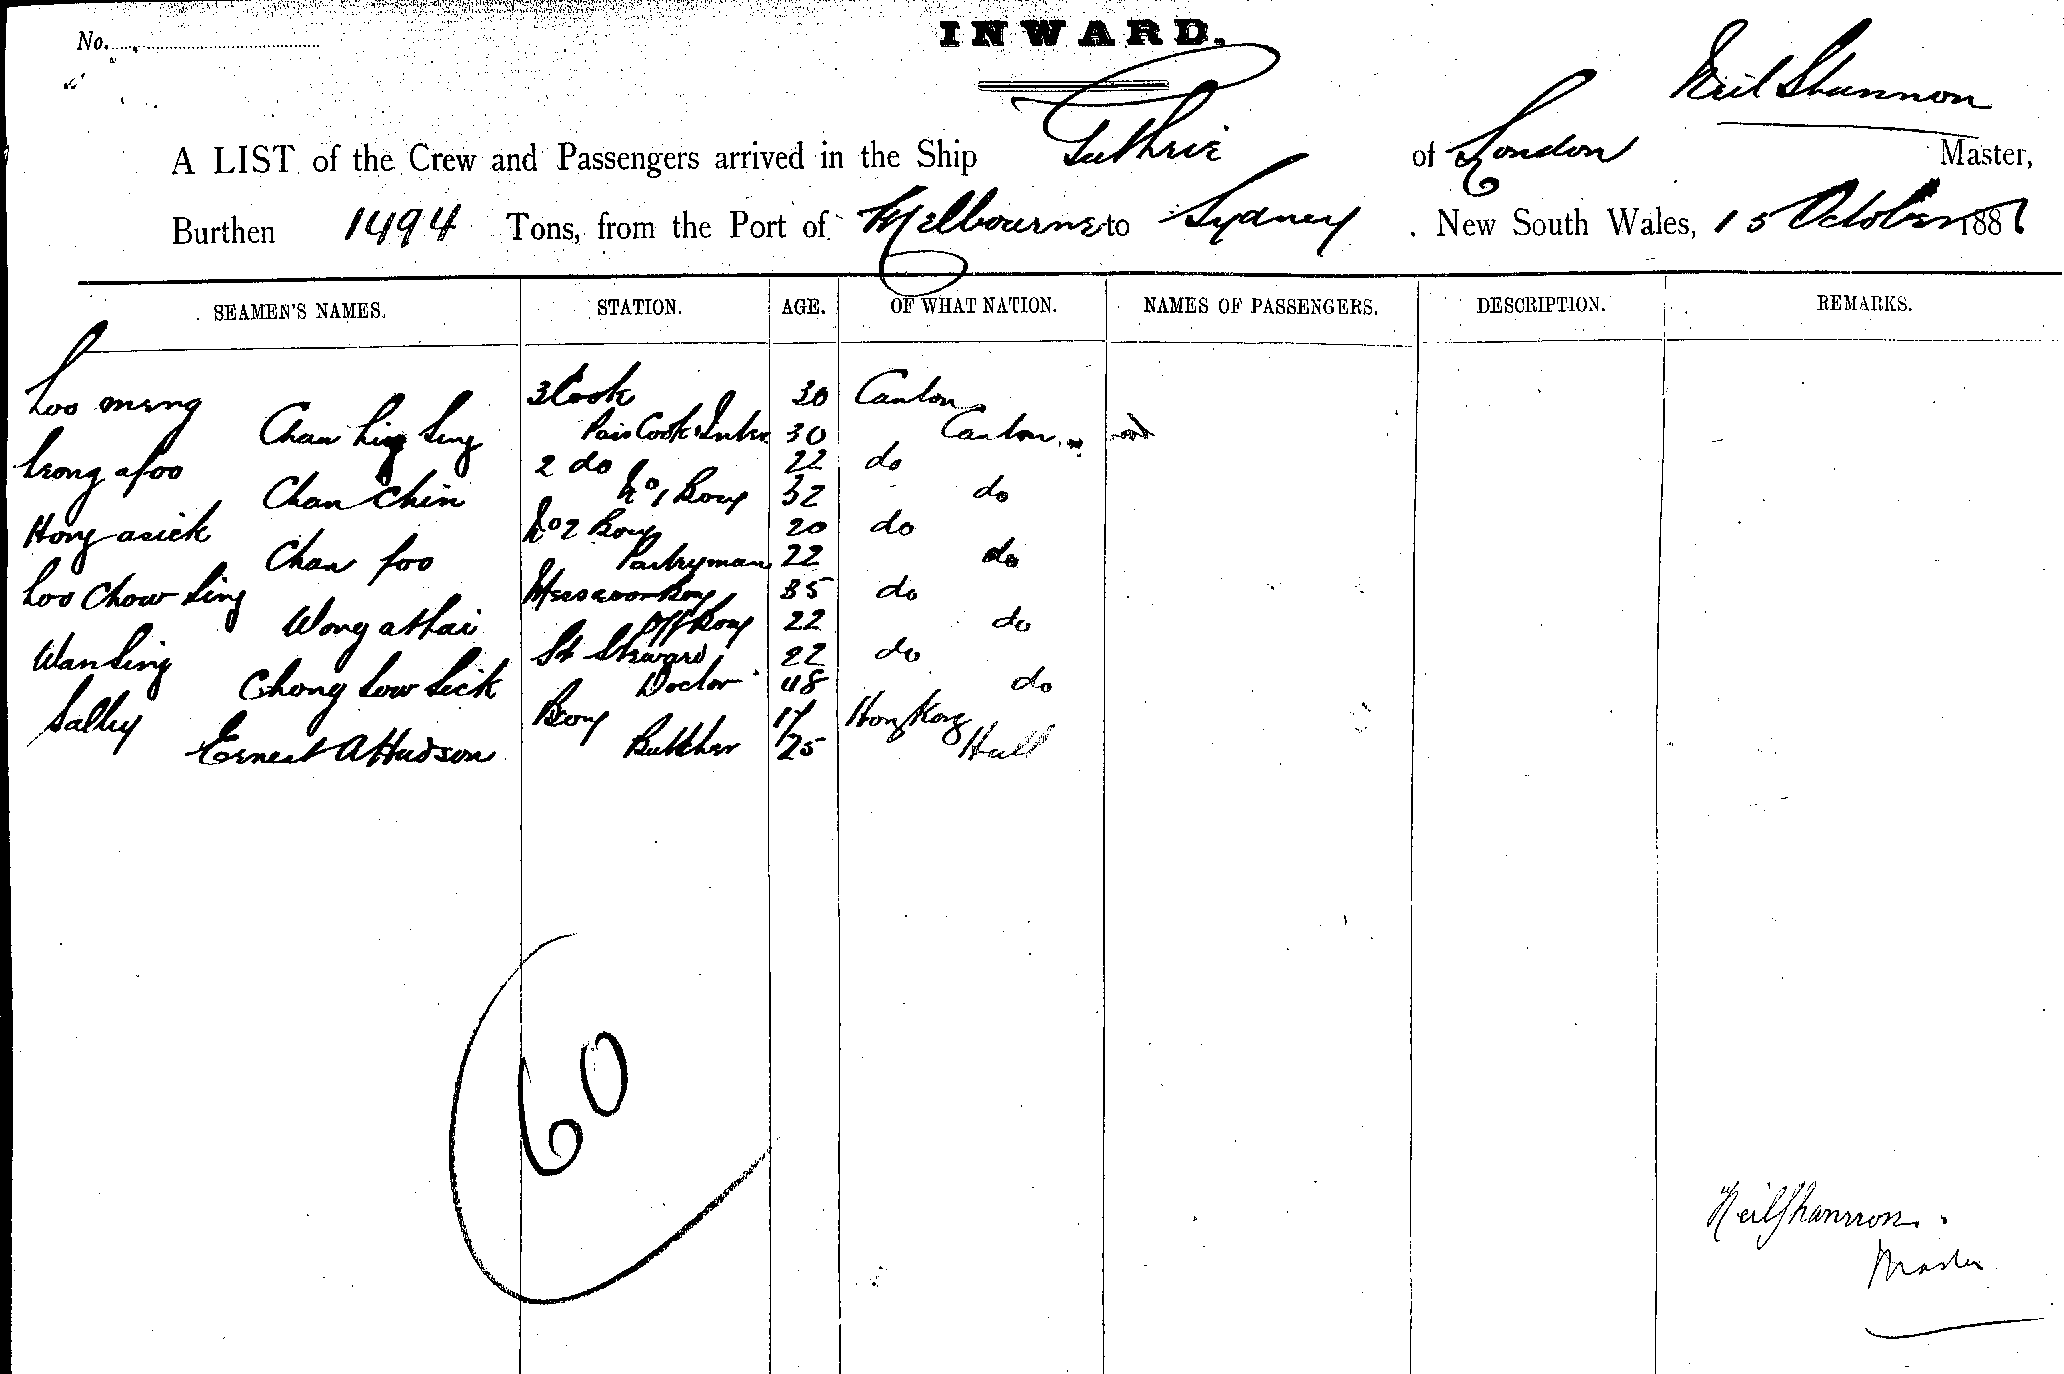 No.
INWARD.
Neil Shannon
A LIST of the Crew and Passengers arrived in the Ship Guthrie of London Master,
Burthen 1494 Tons, from the Port of Melbourne to Sydney . New South Wales, 15 October 1886
SEAMEN'S NAMES. STATION. AGE. OF WHAT NATION. NAMES OF PASSENGERS. DESCRIPTION. REMARKS.
Loo meng 3 Cook 30 Canton
Chan Ling Sing Cook 30 Canton
afoo 2 do 22 do
Chan Chin No 1 Boy 32 do
Hong asick No 2 Boy 20 do
Chan foo Pantryman 22 do
Loo Chow Sing Messroom Boy 35 do
Wong athai Off Boy 22 do
Wan Sing St Steward 22 do
Chong Low Sick Doctor 48 do
Salley Boy 17 Hong Kong
Ernest A Hudson Butcher 25 Hull
60
Neil Shannon.
Master